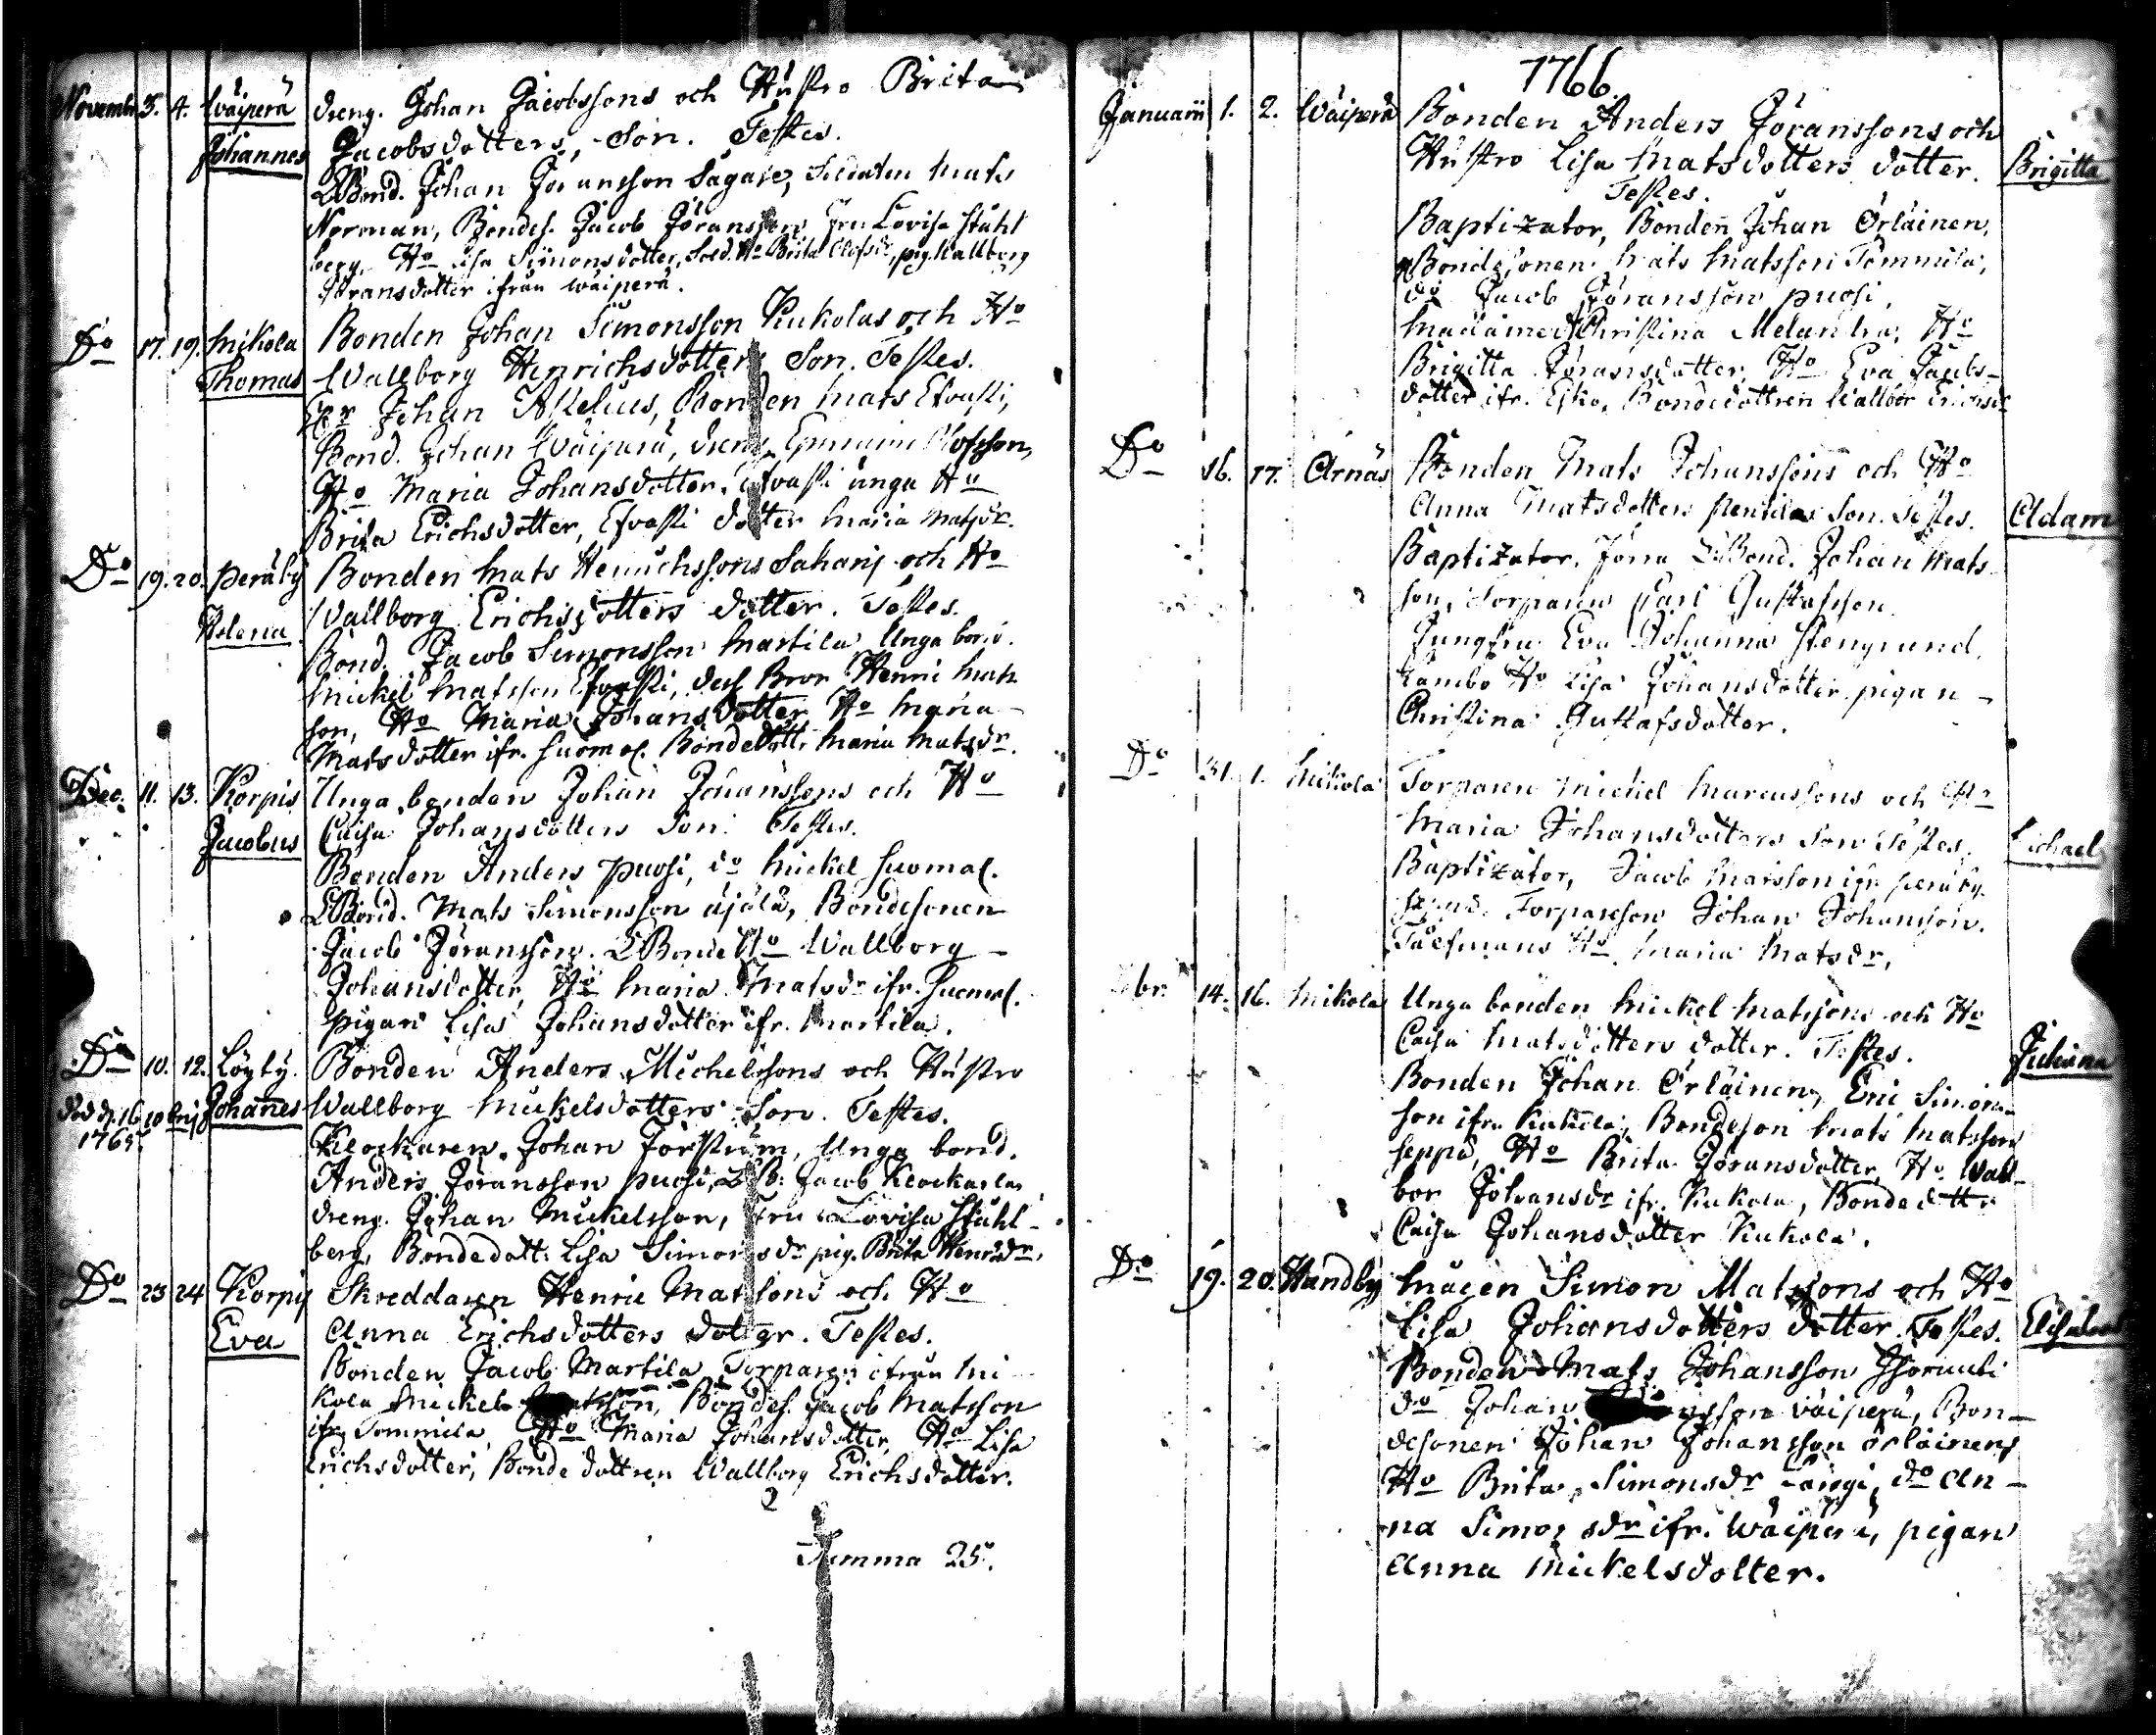 Novembr 3. 4. Wäiperä Dreng. Johan Jacobssons och Hustro Brita
Johannes Jacobsdotters, Son. Testes.
Bond. Johan Joransson Sagare, Soldaten Mats
Norman, Bondes. Jacob Jöransson, Fru Lovisa Stahl
berg, Ho Lisa Simonsdotter, Sold. Ho Brita Olofsdr, pig. Wallborg
Joransdotter ifrån Wäiperä.
Do 17. 19. Mikola Bonden Johan Simonsson Kukolas och Ho
Thomas Wallborg Henrichsdotters Son. Testes.
Johan Bonden Mats Efvasti,
Bond. Johan Wäiperä, dreng Olofsson,
Ho Maria Johansdotter, Efvasti unga Ho
Brita Erichsdotter, Efvasti dotter Maria Matsdr.
Do 19. 20. Peräby Bonden Mats Henrichssons Sahari och Ho
Helena Wallborg Erichsdotters dotter. Testes.
Bond. Jacob Simonsson Martila Unga bond.
Mickel Matsson Efvasti, dess Bror Henric Mats
son, Ho Maria Johansdotter Ho Maria
Matsdotter ifr. Suomal. Bondedott. Maria Matsdr.
Dec. 11. 13. Korpis Unga bonden Johan Johanssons och Ho
Jacobus Caisa Johansdotters Son. Testes.
Bonden Anders Puosi, do Mickel Suomal.
Bond. Mats Simonsson Äjälä, Bondesonen
Jacob Jöransson. Bonde Ho Wallborg
Johansdotter, Ho Maria Matsdr ifr. Suomal.
Pigan Lisa Johansdotter ifr. Martila.
Do 10. 12. Löyty. Bonden Anders Michelssons och Hustro
Död d. 16 Johanes Wallborg Mickelsdotters Son. Testes.
1765 Klockaren Johan Forström, Unga bond.
Anders Jöransson Puosi, Jacob Klockarla
dreng. Johan Mickelsson, Fru Lovisa Stahl-
berg, Bondedott. Lisa Simonsdr pig. Brita Henrsdr,
Do 23 24 Korpis Skreddaren Henric Matssons och Ho
Eva Anna Erichsdotters dotter. Testes.
Bonden Jacob Martila Torparen ifrån Mi
kola Mickel Bondes. Jacob Matsson
ifr. Tommila, Ho Maria Johansdotter, Ho Lisa
Erichsdotter, Bonde dottren Wallborg Erichsdotter.
2
Summa 25.
1766.
Januarii 1. 2. Wäiperä Bonden Anders Jöranssons och
Hustro Lisa Matsdotters dotter. Brigitta
Testes.
Baptizator, Bonden Johan Örläinen,
Bondesonen Mats Matsson Tommila,
do Jacob Jöransson Puosi,
Madame Christina Melandra, Ho
Brigitta Jöransdotter, Ho Eva Jacobs-
dotter ifr. Esko, Bondedottren Wallbor
Do 16. 17. Arnäs Bonden Mats Johanssons och Ho
Anna Matsdotters Pentilas Son. Testes. Adam
Baptizator, Bond. Johan Mats
son, Torparen Carl Gustafsson.
Jungfru Eva Johanna Stengrund,
Ho Lisa Johansdotter pigan
Christina Gustafsdotter.
Do 31. 1. Mikola Torparen Mickel Marcussons och Ho
Maria Johansdotters Son Testes.
Baptizator, Jacob Matsson ifr. Peräby. Michael
Torpareson Johan Johansson.
Ho Maria Matsdr,
14. 16. Mikola Unga bonden Mickel Matssons och Ho
Caisa Matsdotters dotter. Testes. Juliana
Bonden Johan Örläinen, Eric Simons
son ifrn Kukola, Bondeson Mats Matsson
Seppä, Ho Brita Jöransdotter Ho Wall-
bor Johansdr ifr. Kukola, Bondedottr
Caisa Johansdotter Kukola.
Do 19. 20. Handby Mågen Simon Matssons och Ho
Lisa Johansdotters dotter. Testes. Elisabet
Bonden Mats Johansson
do Johan Wäiperä, Bon-
desonen Johan Johansson Örläinens
Ho Brita Simonsdr Längi, do An-
na Simonsdr ifr. Wäiperä, pigan
Anna Mickelsdotter.